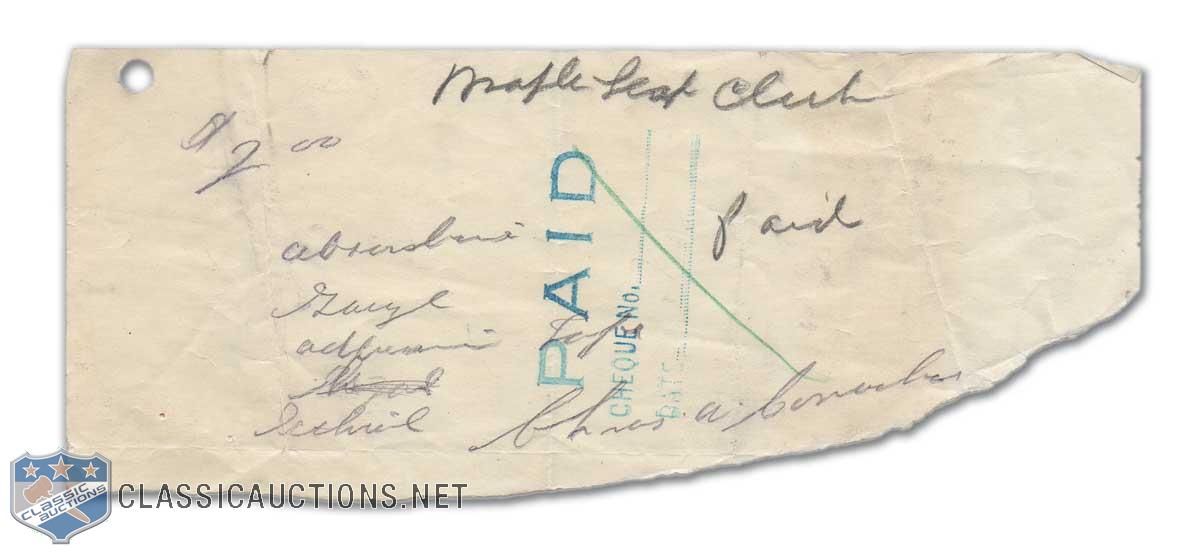 Maple Leaf Club
$2.00
Paid
absorbine
Gauge
adhesive tape
Chas a. Conacher
PAID
CHEQUE No.
DATE
CLASSIC AUCTIONS
CLASSICAUCTIONS.NET